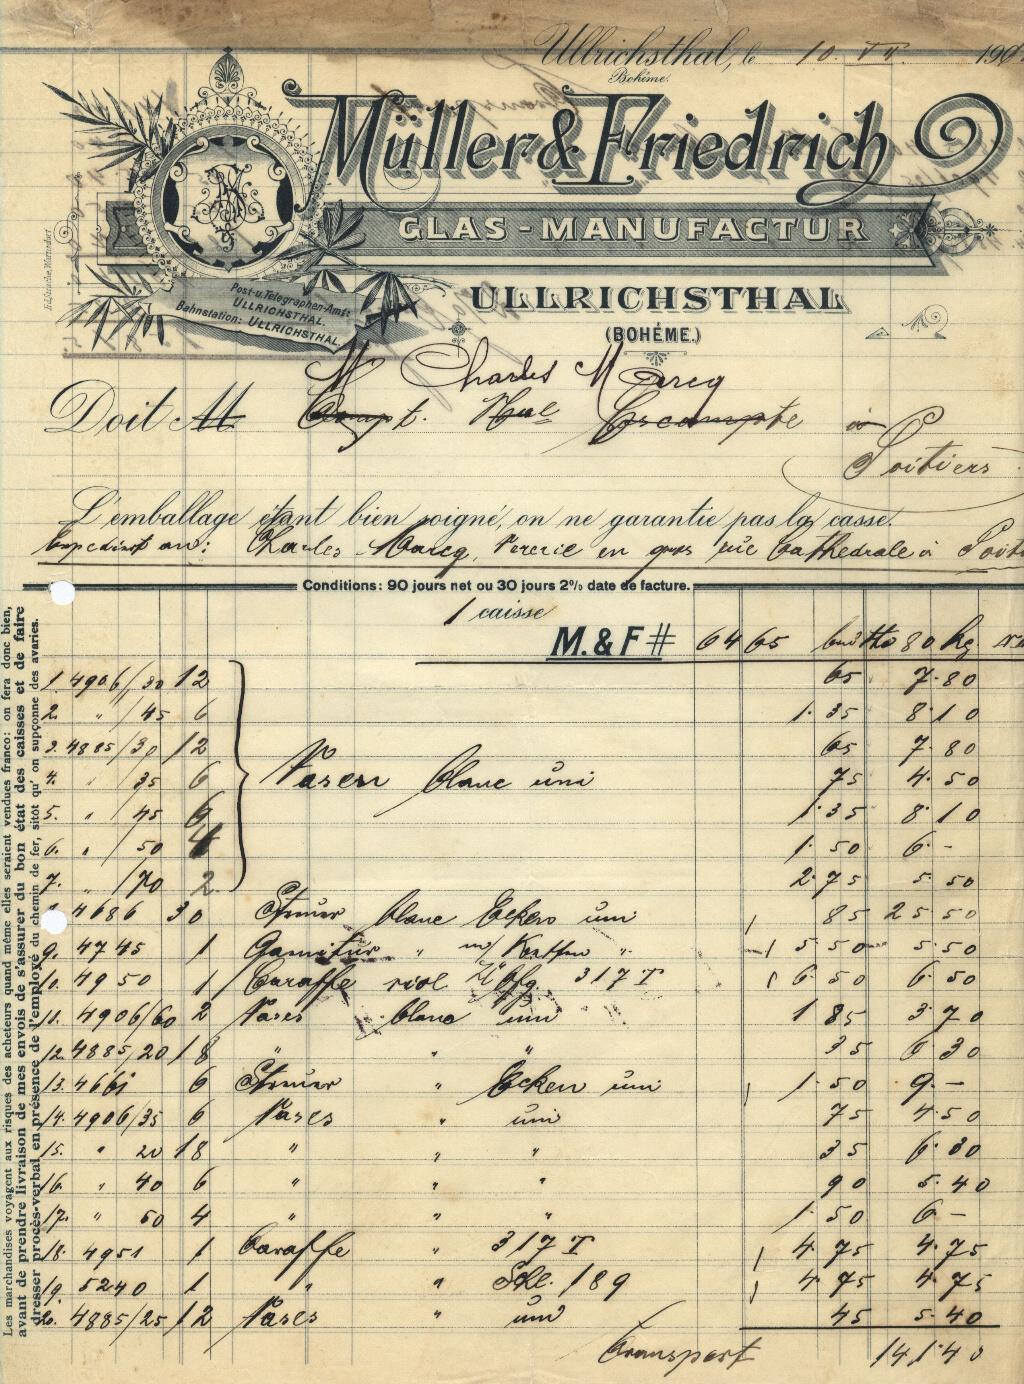 Ullrichsthal, le 10. VII. 190
Bohême.
Müller & Friedrich
GLAS-MANUFACTUR
Post-u. Telegraphen-Amt:
ULLRICHSTHAL.
Bahnstation: ULLRICHSTHAL.
ULLRICHSTHAL
(BOHÊME.)
M Charles Marcq
Doit M Compt. Nal Escompte à
Poitiers
L'emballage étant bien soigné, on ne garantie pas la casse.
Charles Marcq, Verrerie en gros rue Cathédrale à Poiti
Conditions: 90 jours net ou 30 jours 2% date de facture.
1 caisse
M. & F # 6465 brutto 80 kg
1. 4906/30 12 65 7.80
2. " /45 6 1.35 8.10
3. 4885/30 12 65 7.80
4. " 35 6 Vasen blanc uni 75 4.50
5. " 45 6 1.35 8.10
6. " /50 4 1.50 6.-
7. " /70 2 2.75 5.50
4686 30 blanc Ecken uni 85 25 50
9. 4745 1 Garnitur " " 5.50 5.50
10. 4950 1 Caraffe 317 T 6.50 6.50
11. 4906/60 2 Vases blanc uni 1 85 3.70
12. 4885/20 18 " " " 35 6 30
13. 4661 6 " Ecken uni 1.50 9.-
14. 4906/35 6 Vases " uni 75 4.50
15. " 20 18 " " " 35 6.30
16. " 40 6 " " " 90 5.40
17. " 50 4 " " " 1.50 6 -
18. 4951 1 Caraffe " 317 T 4.75 4.75
19. 5240 1 " " Schl. 189 4.75 4.75
20. 4885/25 12 Vases " uni 45 5.40
Transport 141.40
Les marchandises voyagent aux risques des acheteurs quand même elles seraient vendues franco: on fera donc bien,
avant de prendre livraison de mes envois de s'assurer du bon état des caisses et de faire
dresser procès-verbal en présence de l'employé du chemin de fer, sitôt qu' on supçonne des avaries.